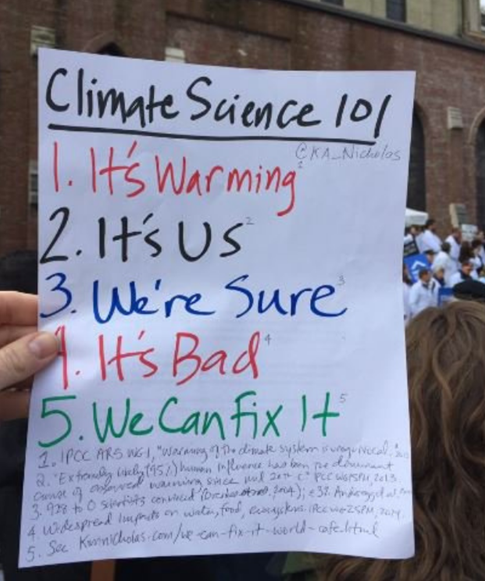 Climate Science 101
@KA_Nicholas
1. It's Warming¹
2. It's Us²
3. We're Sure³
4. It's Bad⁴
5. We Can Fix It⁵
1. IPCC AR5 WG1, "Warming of the climate system is unequivocal."
2. "Extremely likely (95%) human influence has been the dominant
cause of observed warming since mid 20th C" IPCC WG1SPM, 2013
3. 928 to 0 scientists convinced
4 Widespread impacts on water, food, ecosystems IPCC WG2SPM, 2014
5. See Kimnicholas.com/we-can-fix-it-world-cafe.html